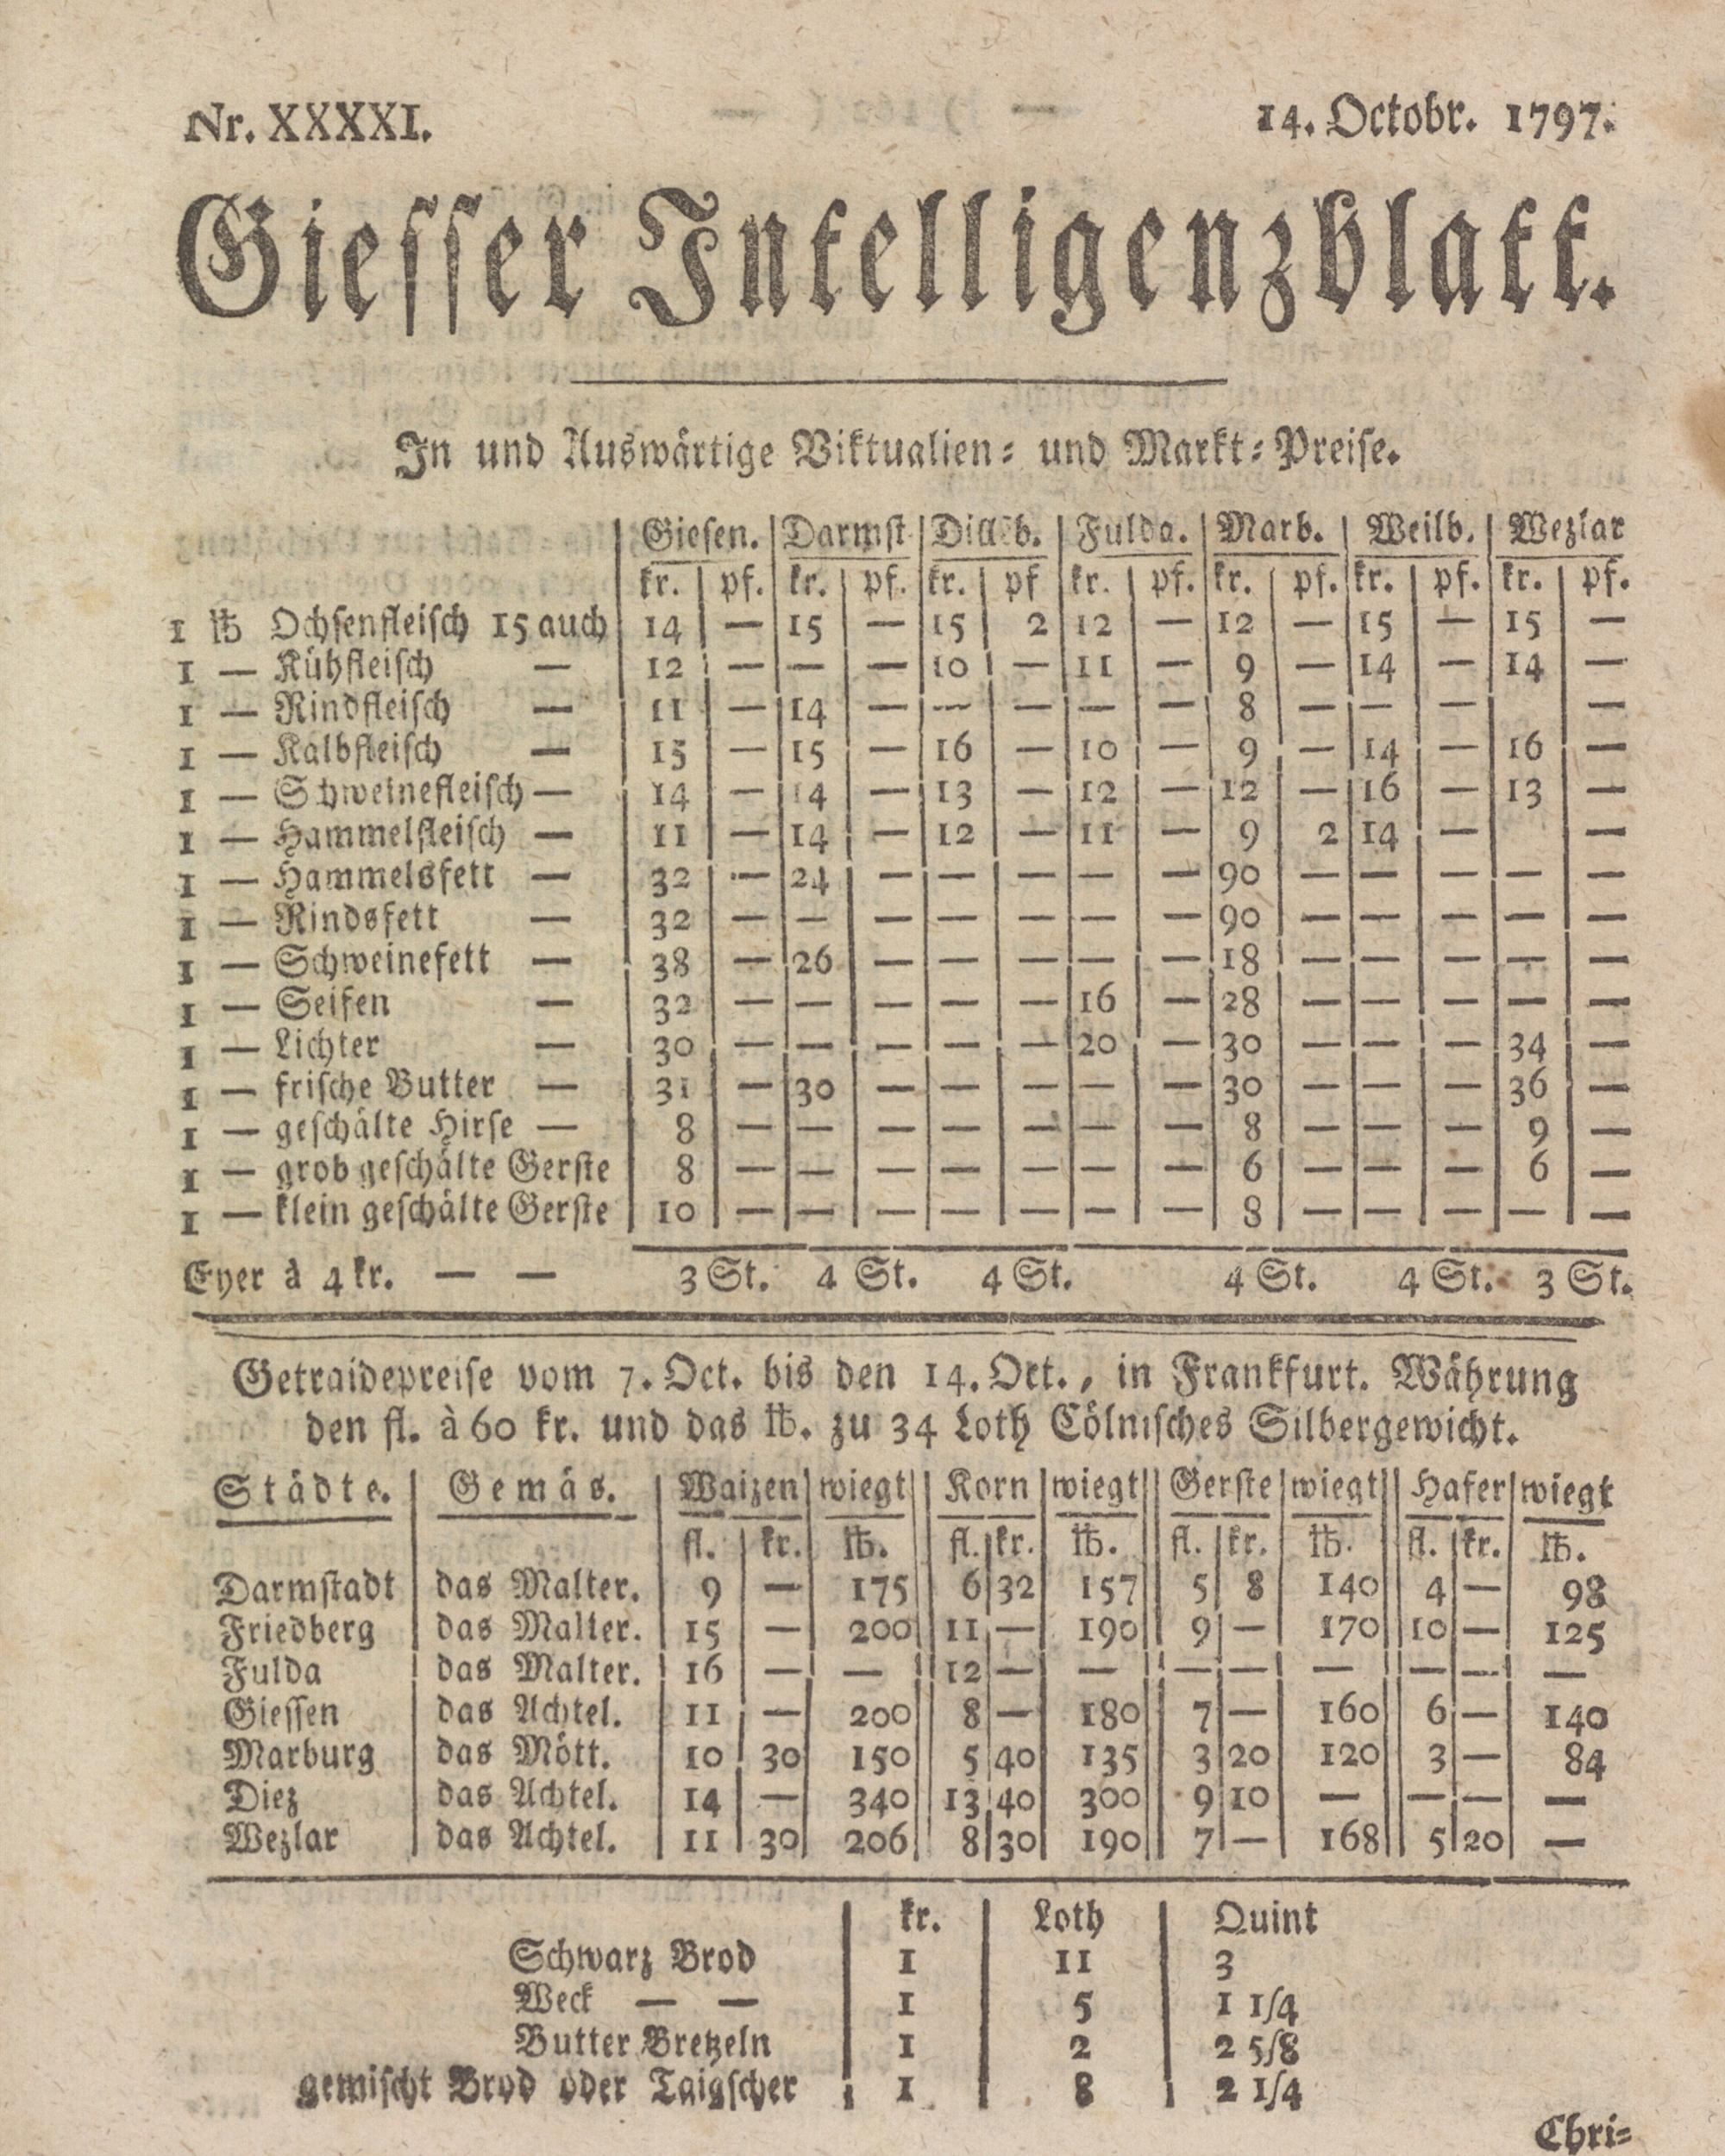 Nr. XXXXI. 14. Octobr. 1797.
Giesser Intelligenzblatt.
In und Auswärtige Viktualien- und Markt-Preise.
Giesen. | Darmst | Dillb. | Fulda. | Marb. | Weilb. | Wezlar
kr. | pf. | kr. | pf. | kr. | pf | kr. | pf. | kr. | pf. | kr. | pf. | kr. | pf.
1 ℔ Ochsenfleisch 15 auch | 14 | — | 15 | — | 15 | 2 | 12 | — | 12 | — | 15 | — | 15 | —
1 — Kühfleisch — | 12 | — | — | — | 10 | — | 11 | — | 9 | — | 14 | — | 14 | —
1 — Rindfleisch — | 11 | — | 14 | — | — | — | — | — | 8 | — | — | — | | —
1 — Kalbfleisch — | 15 | — | 15 | — | 16 | — | 10 | — | 9 | — | 14 | — | 16 | —
1 — Schweinefleisch — | 14 | — | 14 | — | 13 | — | 12 | — | 12 | — | 16 | — | 13 | —
1 — Hammelfleisch — | 11 | — | 14 | — | 12 | — | 11 | — | 9 | 2 | 14 | — | | —
1 — Hammelsfett — | 32 | — | 24 | — | — | — | — | — | 90 | — | — | — | — | —
1 — Rindsfett — | 32 | — | — | — | — | — | — | — | 90 | — | — | — | — | —
1 — Schweinefett — | 38 | — | 26 | — | — | — | — | — | 18 | — | — | — | — | —
1 — Seifen — | 32 | — | — | — | — | — | 16 | — | 28 | — | — | — | — | —
1 — Lichter — | 30 | — | — | — | — | — | 20 | — | 30 | — | — | — | 34 | —
1 — frische Butter — | 31 | — | 30 | — | — | — | — | — | 30 | — | — | — | 36 | —
1 — geschälte Hirse — | 8 | — | — | — | — | — | — | — | 8 | — | — | — | 9 | —
1 — grob geschälte Gerste | 8 | — | — | — | — | — | — | — | 6 | — | — | — | 6 | —
1 — klein geschälte Gerste | 10 | — | — | — | — | — | — | — | 8 | — | — | — | — | —
Eyer à 4 kr. — — 3 St. 4 St. 4 St. 4 St. 4 St. 3 St.
Getraidepreise vom 7. Oct. bis den 14. Oct., in Frankfurt. Währung
den fl. à 60 kr. und das ℔. zu 34 Loth Cölnisches Silbergewicht.
Städte. | Gemäs. | Waizen | wiegt || Korn | wiegt || Gerste | wiegt || Hafer | wiegt
fl. | kr. | ℔. || fl. | kr. | ℔. || fl. | kr. | ℔. || fl. | kr. | ℔.
Darmstadt | das Malter. | 9 | — | 175 || 6 | 32 | 157 || 5 | 8 | 140 || 4 | — | 98
Friedberg | das Malter. | 15 | — | 200 || 11 | — | 190 || 9 | — | 170 || 10 | — | 125
Fulda | das Malter. | 16 | — | — || 12 | — | — || — | — | — || — | — | —
Giessen | das Achtel. | 11 | — | 200 || 8 | — | 180 || 7 | — | 160 || 6 | — | 140
Marburg | das Mött. | 10 | 30 | 150 || 5 | 40 | 135 || 3 | 20 | 120 || 3 | — | 84
Diez | das Achtel. | 14 | — | 340 || 13 | 40 | 300 || 9 | 10 | — || — | — | —
Wezlar | das Achtel. | 11 | 30 | 206 || 8 | 30 | 190 || 7 | — | 168 || 5 | 20 | —
| kr. | Loth | Quint
Schwarz Brod | 1 | 11 | 3
Weck — — | 1 | 5 | 1 1/4
Butter Bretzeln | 1 | 2 | 2 5/8
gemischt Brod oder Taigscher | 1 | 8 | 2 1/4
Chri-